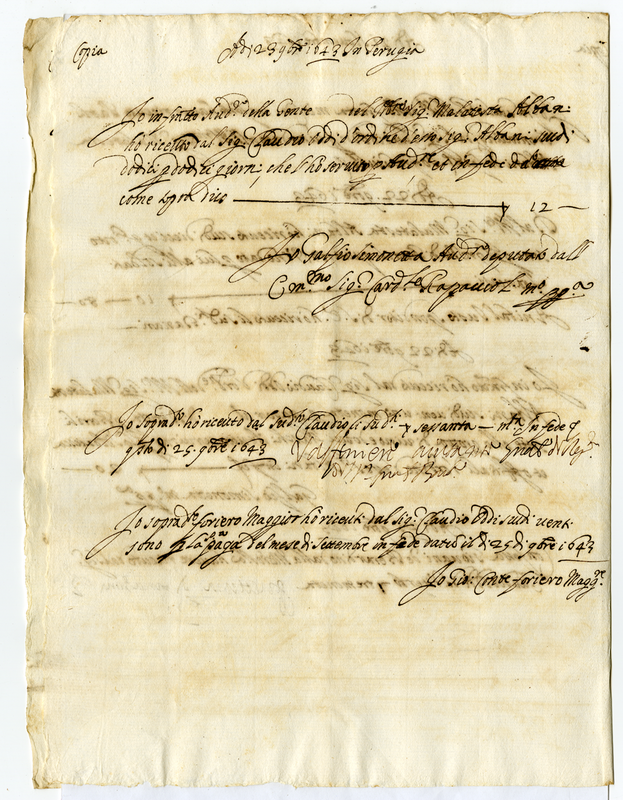 Copia
Adi 23 9bre 1643 In Perugia
Io infr̃itto Aud.re della Gente del Sig.r Malatesta Alban:
ho riceuto dal Sig.r Claudio Oddi d'ordine d'esso Sig.r Albani scudi
dodici p dodici giorni, che l'ho seruito p Aud.re, et in fede
come sop.a dico 12 —
Io Simonetta Aud.re deputato dall'
Em.mo Sig.r Card.le Rapaccioli
Io soprad.o ho riceuto dal Sud.o Claudio li Sud.i sessanta — m.ta In fede q
q.sto dì 25 9bre 1643
Io soprad.o foriero Maggior ho riceuti dal Sig.r Claudio Oddi scudi uenti
sono p la paga del mese di Settembre in fede dato il dì 25 di 9bre 1643
Io Gio: Conte foriero Magg.re